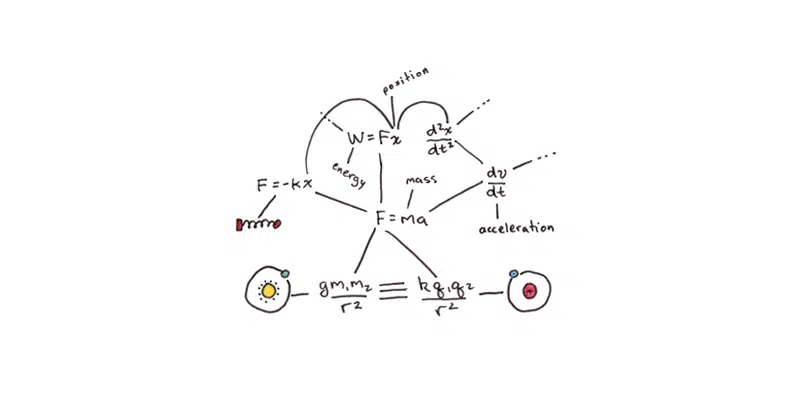 position
W = Fx
d²x
dt²
energy
F = -kx
mass
dv
dt
F = ma
acceleration
gm₁m₂
r²
≡
kq₁q₂
r²
+